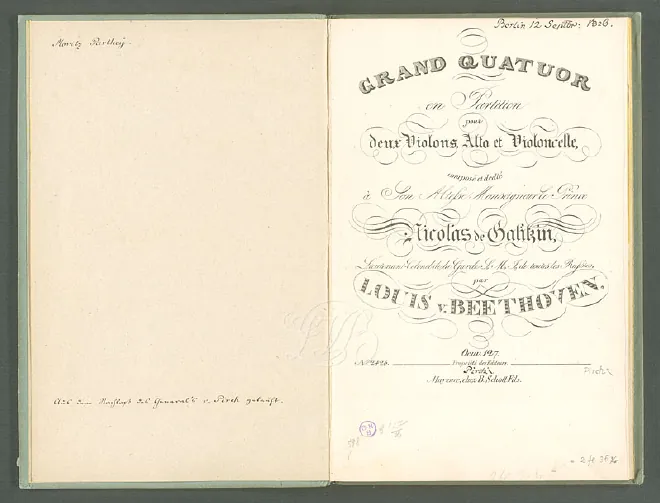 Moritz Parthey.
Aus dem Nachlass des Generals v. Pirch gekauft.
Berlin, 12 Septbr. 1826.
GRAND QUATUOR
en Partition
pour
deux Violons, Alto et Violoncelle,
composé et dédié
à Son Altesse Monseigneur le Prince
Nicolas de Galitzin,
Lieutenant-Colonel de la Garde S. M. I. de toutes les Russies,
par
LOUIS v. BEETHOVEN.
Oeuv. 127.
Propriété des Editeurs.
Mayence, chez B. Schott Fils.